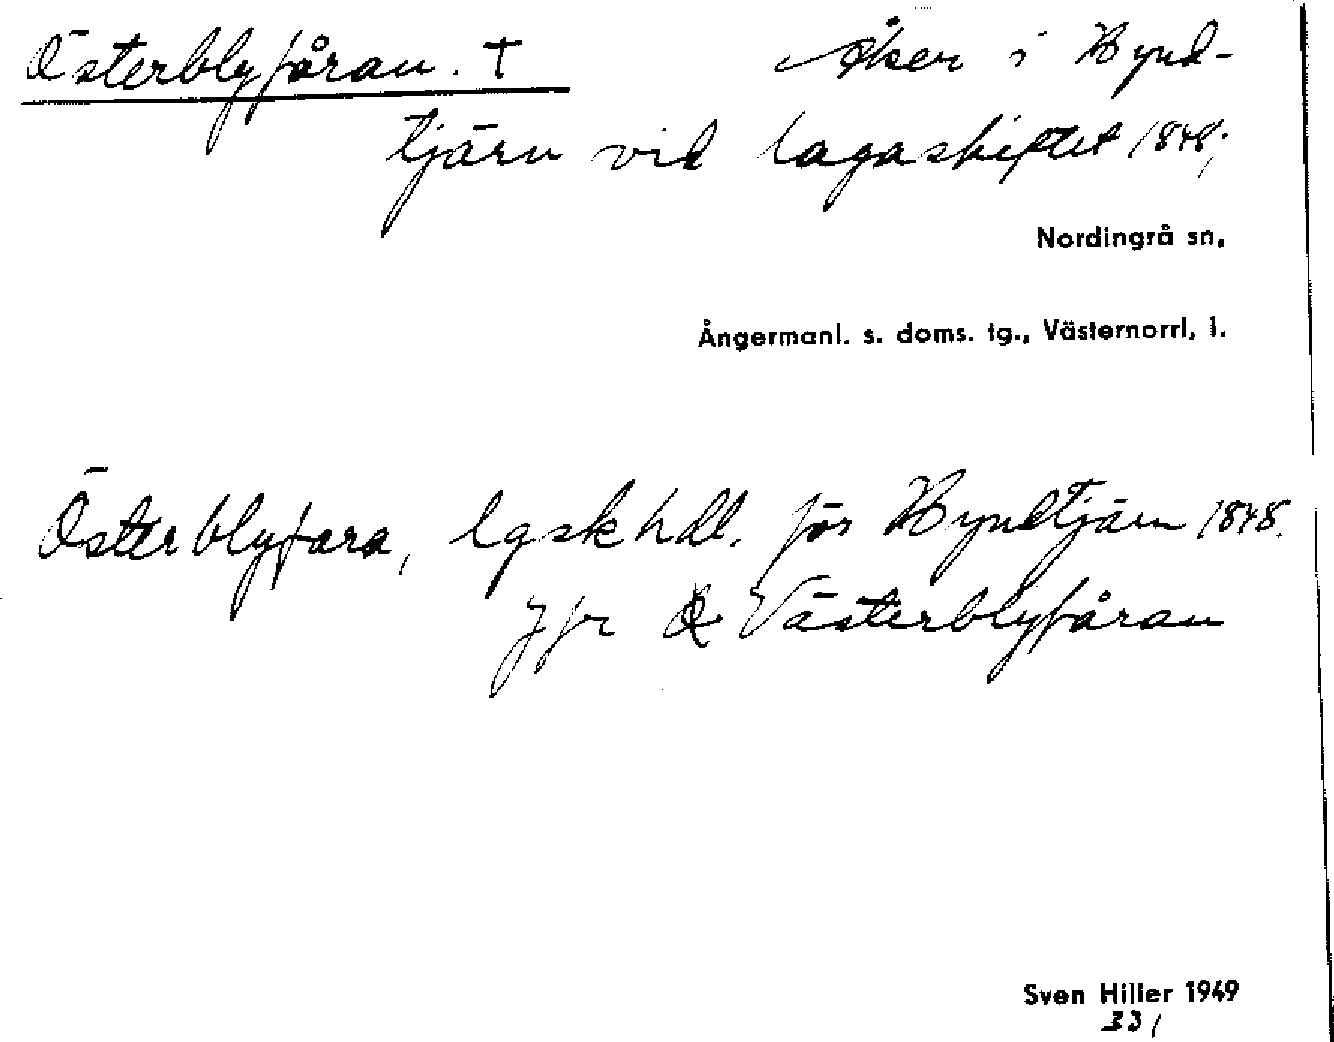 Österblyfåran. † Åker i Hynd-
tjärn vid lagaskiftet 1848;
Nordingrå sn,
Ångermanl. s. doms. tg., Västernorrl, l.
Österblyfara, lgskhdl. för Hyndtjärn 1848.
Jfr Västerblyfåran
Sven Hiller 1949
331